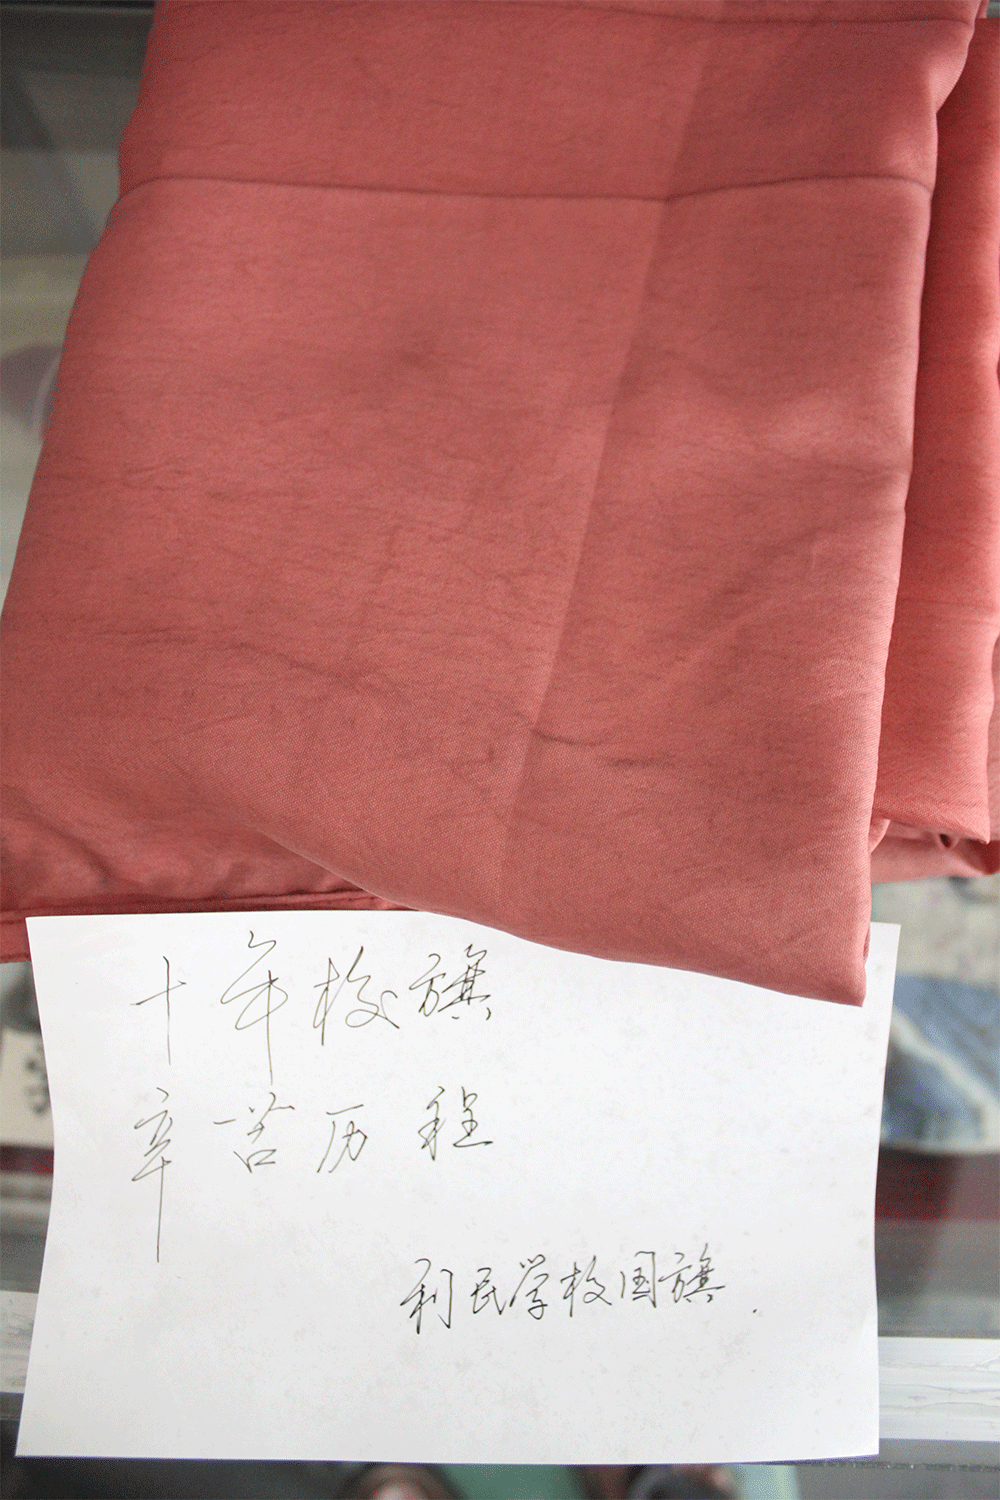 十年校旗
辛苦历程
利民学校国旗.